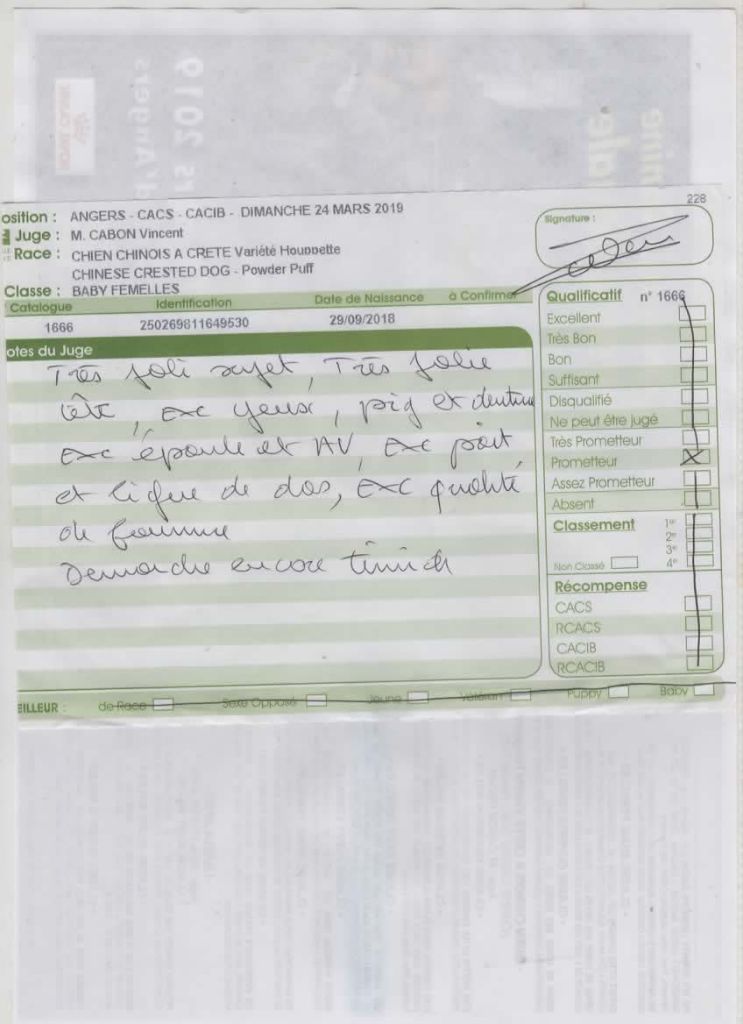 228
osition : ANGERS - CACS - CACIB - DIMANCHE 24 MARS 2019
Juge : M. CABON Vincent
Race : CHIEN CHINOIS A CRETE Variété Houppette
CHINESE CRESTED DOG - Powder Puff
Classe : BABY FEMELLES
Signature :
Catalogue Identification Date de Naissance à Confirmer
1666 250269811649530 29/09/2018
otes du Juge
Très joli sujet, Très jolie
tête, exc yeux, pig et denture
exc épaule et AV, exc port
et ligne de dos, exc qualité
de fourrure
Demarche encore timide
Qualificatif n° 1666
Excellent
Très Bon
Bon
Suffisant
Disqualifié
Ne peut être jugé
Très Prometteur
Prometteur X
Assez Prometteur
Absent
Classement 1er
2e
3e
Non Classé 4e
Récompense
CACS
RCACS
CACIB
RCACIB
EILLEUR : de Race Sexe Opposé Jeune Vétéran Puppy Baby
d'Angers
rs 2019
ROYAL CANIN
ale
nine